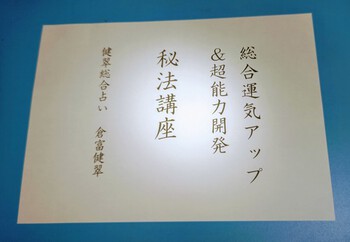 総合運気アップ
&超能力開発
秘法講座
健翠総合占い　倉富健翠